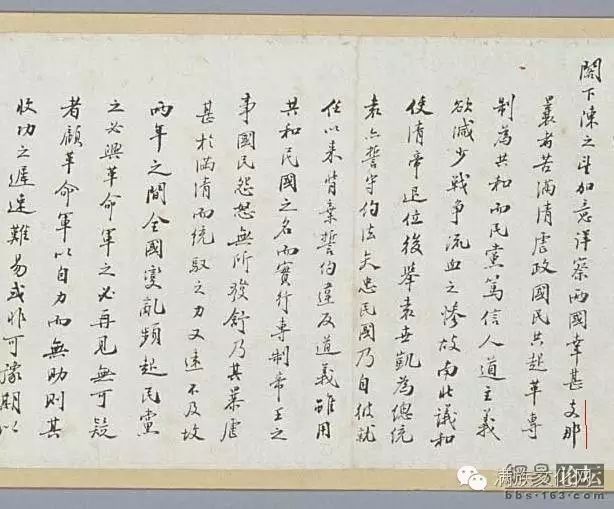 閣下陳之計加意詳察兩國幸甚支那
曩者苦滿清虐政國民共起革專
制為共和而民黨篤信人道主義
欲減少戰爭流血之慘故南北議和
使清帝退位後舉袁世凱為總統
袁亦誓守約法矢忠民國乃自彼就
任以來背棄誓約違反道義雖用
共和民國之名而實行專制帝王之
事國民怨怒無所發舒乃其暴虐
甚於滿清而統馭之力又遠不及故
兩年之間全國變亂頻起民黨
之必興革命軍之必再見無可疑
者顧革命軍以自力而無助則其
收功之遲速難易或非可豫期以
满族文化网
网易论坛
bbs.163.com